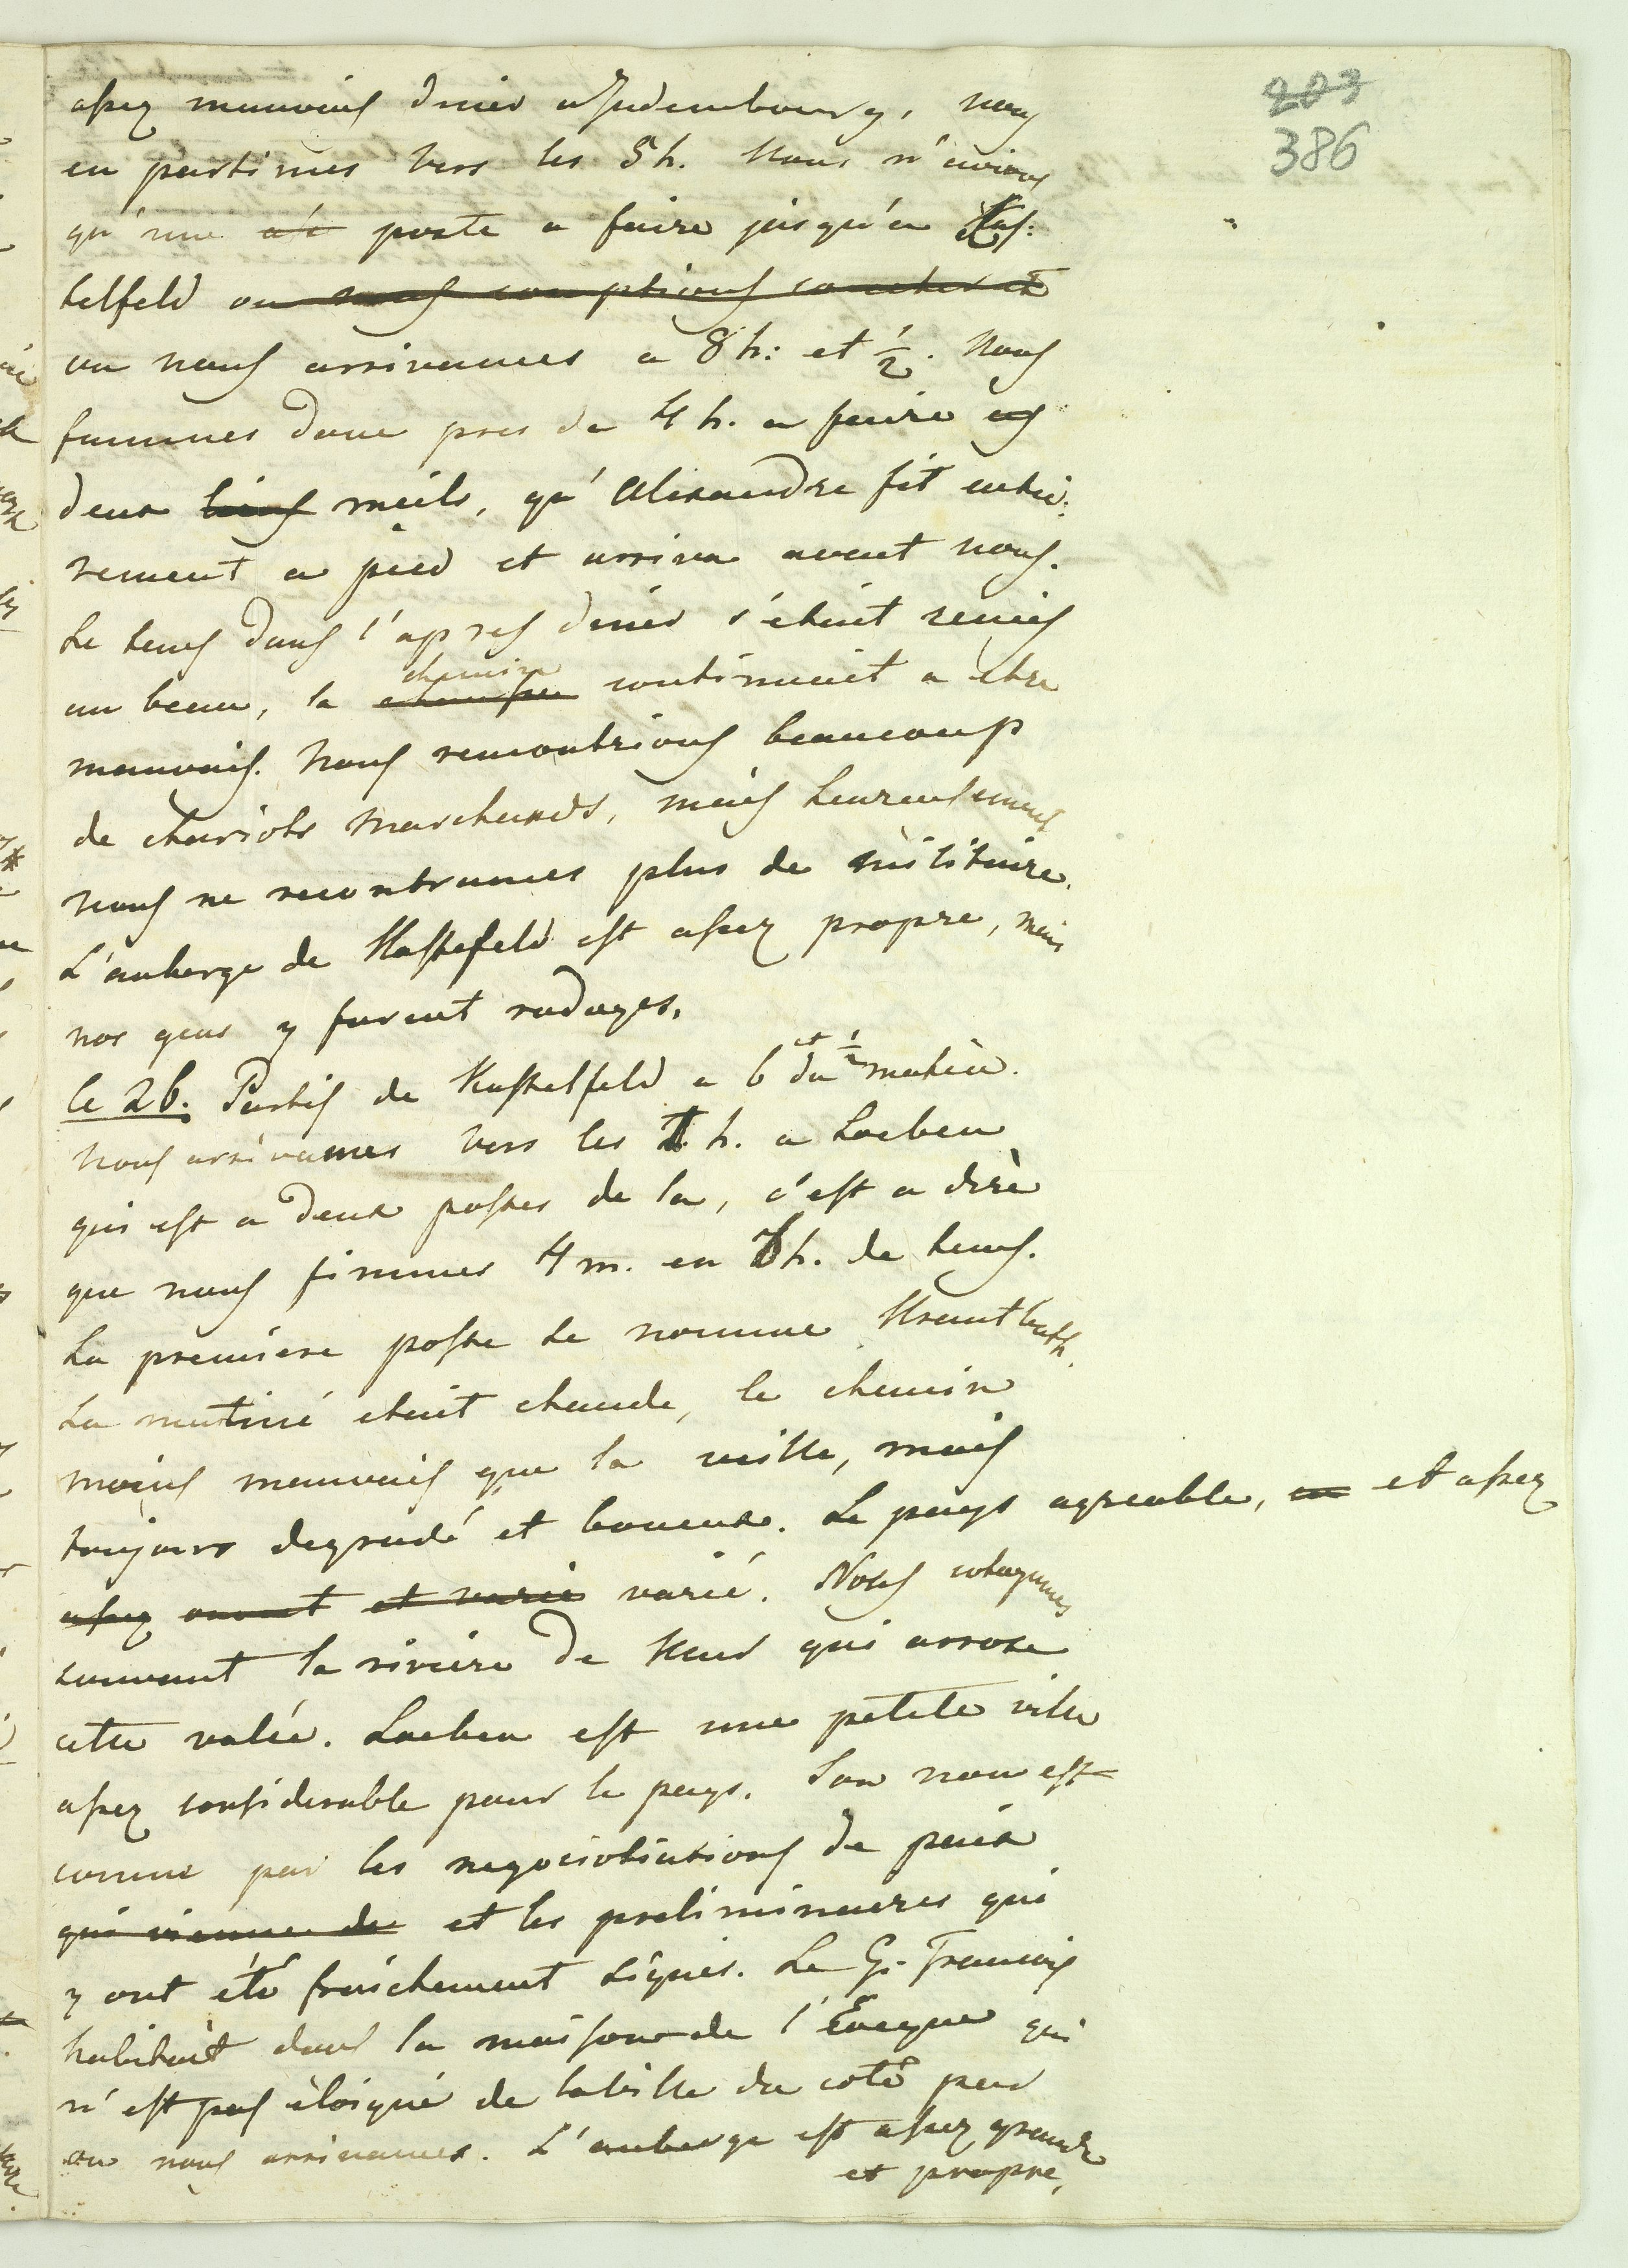 203
386
assez mauvais diner a Judembourg, nous
en partimes vers les 5 h. Nous n'avions
qu'une poste a faire jusqu'a Kas:
telfeld ou nous comptions coucher et
ou nous arrivames a 8 h: et ½. Nous
fummes donc pres de 4 h. a faire
deux lieus meils, qu'Alexandre fit entie:
rement a pied et arriva avant nous.
Le tems dans l'apres diner s'etait remis
au beau, la chaussée chemin continuait a etre
mauvais. Nous rencontrions beaucoup
de chariots marchands, mais heureusement
nous ne recontrames plus de militaire.
L'auberge de Kastefeld est assez propre, mais
nos gens y furent rudoyes.
le 26. Partis de Kastelfeld a 6 et ½ du matin.
Nous arrivames vers les 1 h. a Loeben
qui est a deux postes de la, c'est a dire
que nous fimmes 4 m. en 7 h. de tems.
La premiere poste se nomme Kraubath.
La matiné etait chaude, le chemin
moins mauvais que la veille, mais
toujours degradé et boueux. Le pays agreable, et assez
assez ouvert et varié varié. Nous cotoyames
souvent la riviere de Muer qui arrose
cette valée. Loeben est une petite ville
assez considerable pour le pays. Son nom est
connu par les negociotiations de paix
qui vienne de et les preliminaires qui
y ont été fraichement signés. Le G. Francois
habitait dans la maison de l'Eveque qui
n'est pas éloigné de la ville du coté par
ou nous arrivames. L'auberge est assez grande
et propre,